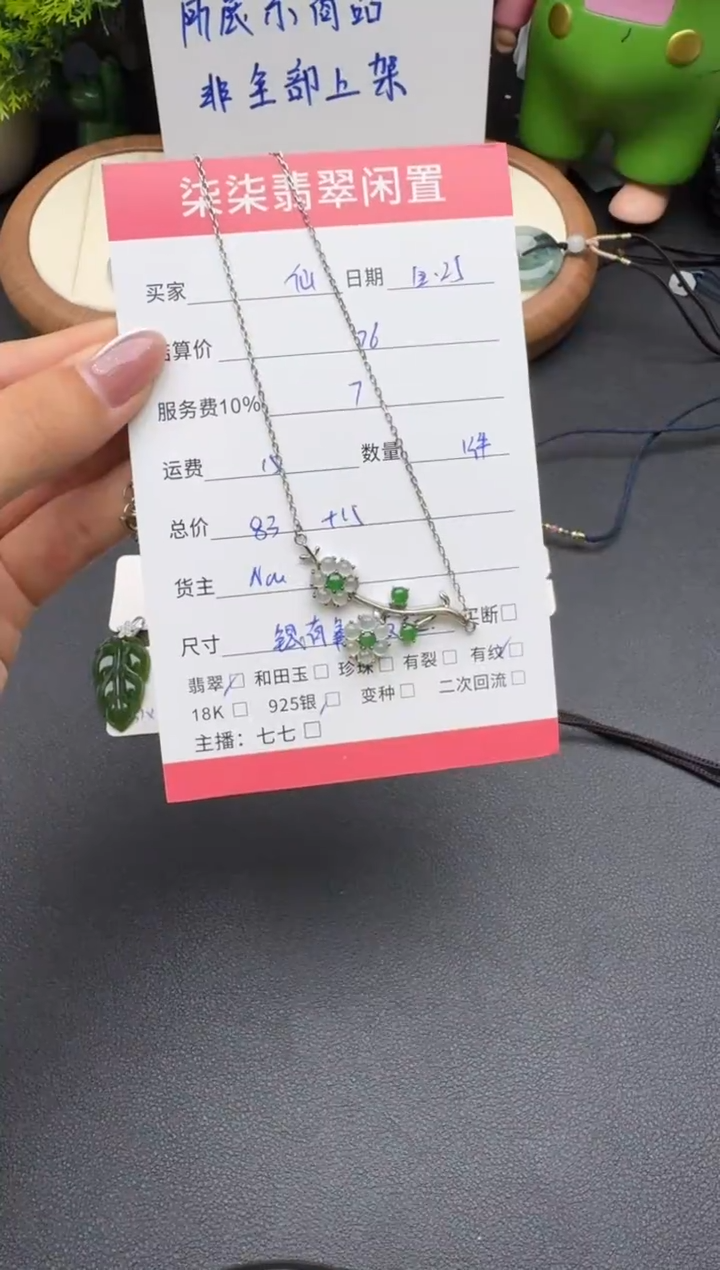 所展示商品
非全部上架
柒柒翡翠闲置
买家 仙 日期 12.25
结算价 76
服务费10% 7
运费 15 数量 1件
总价 83 +15
货主
尺寸 银有 买断
翡翠 和田玉 珍珠 有裂 有纹
18K 925银 变种 二次回流
主播：七七